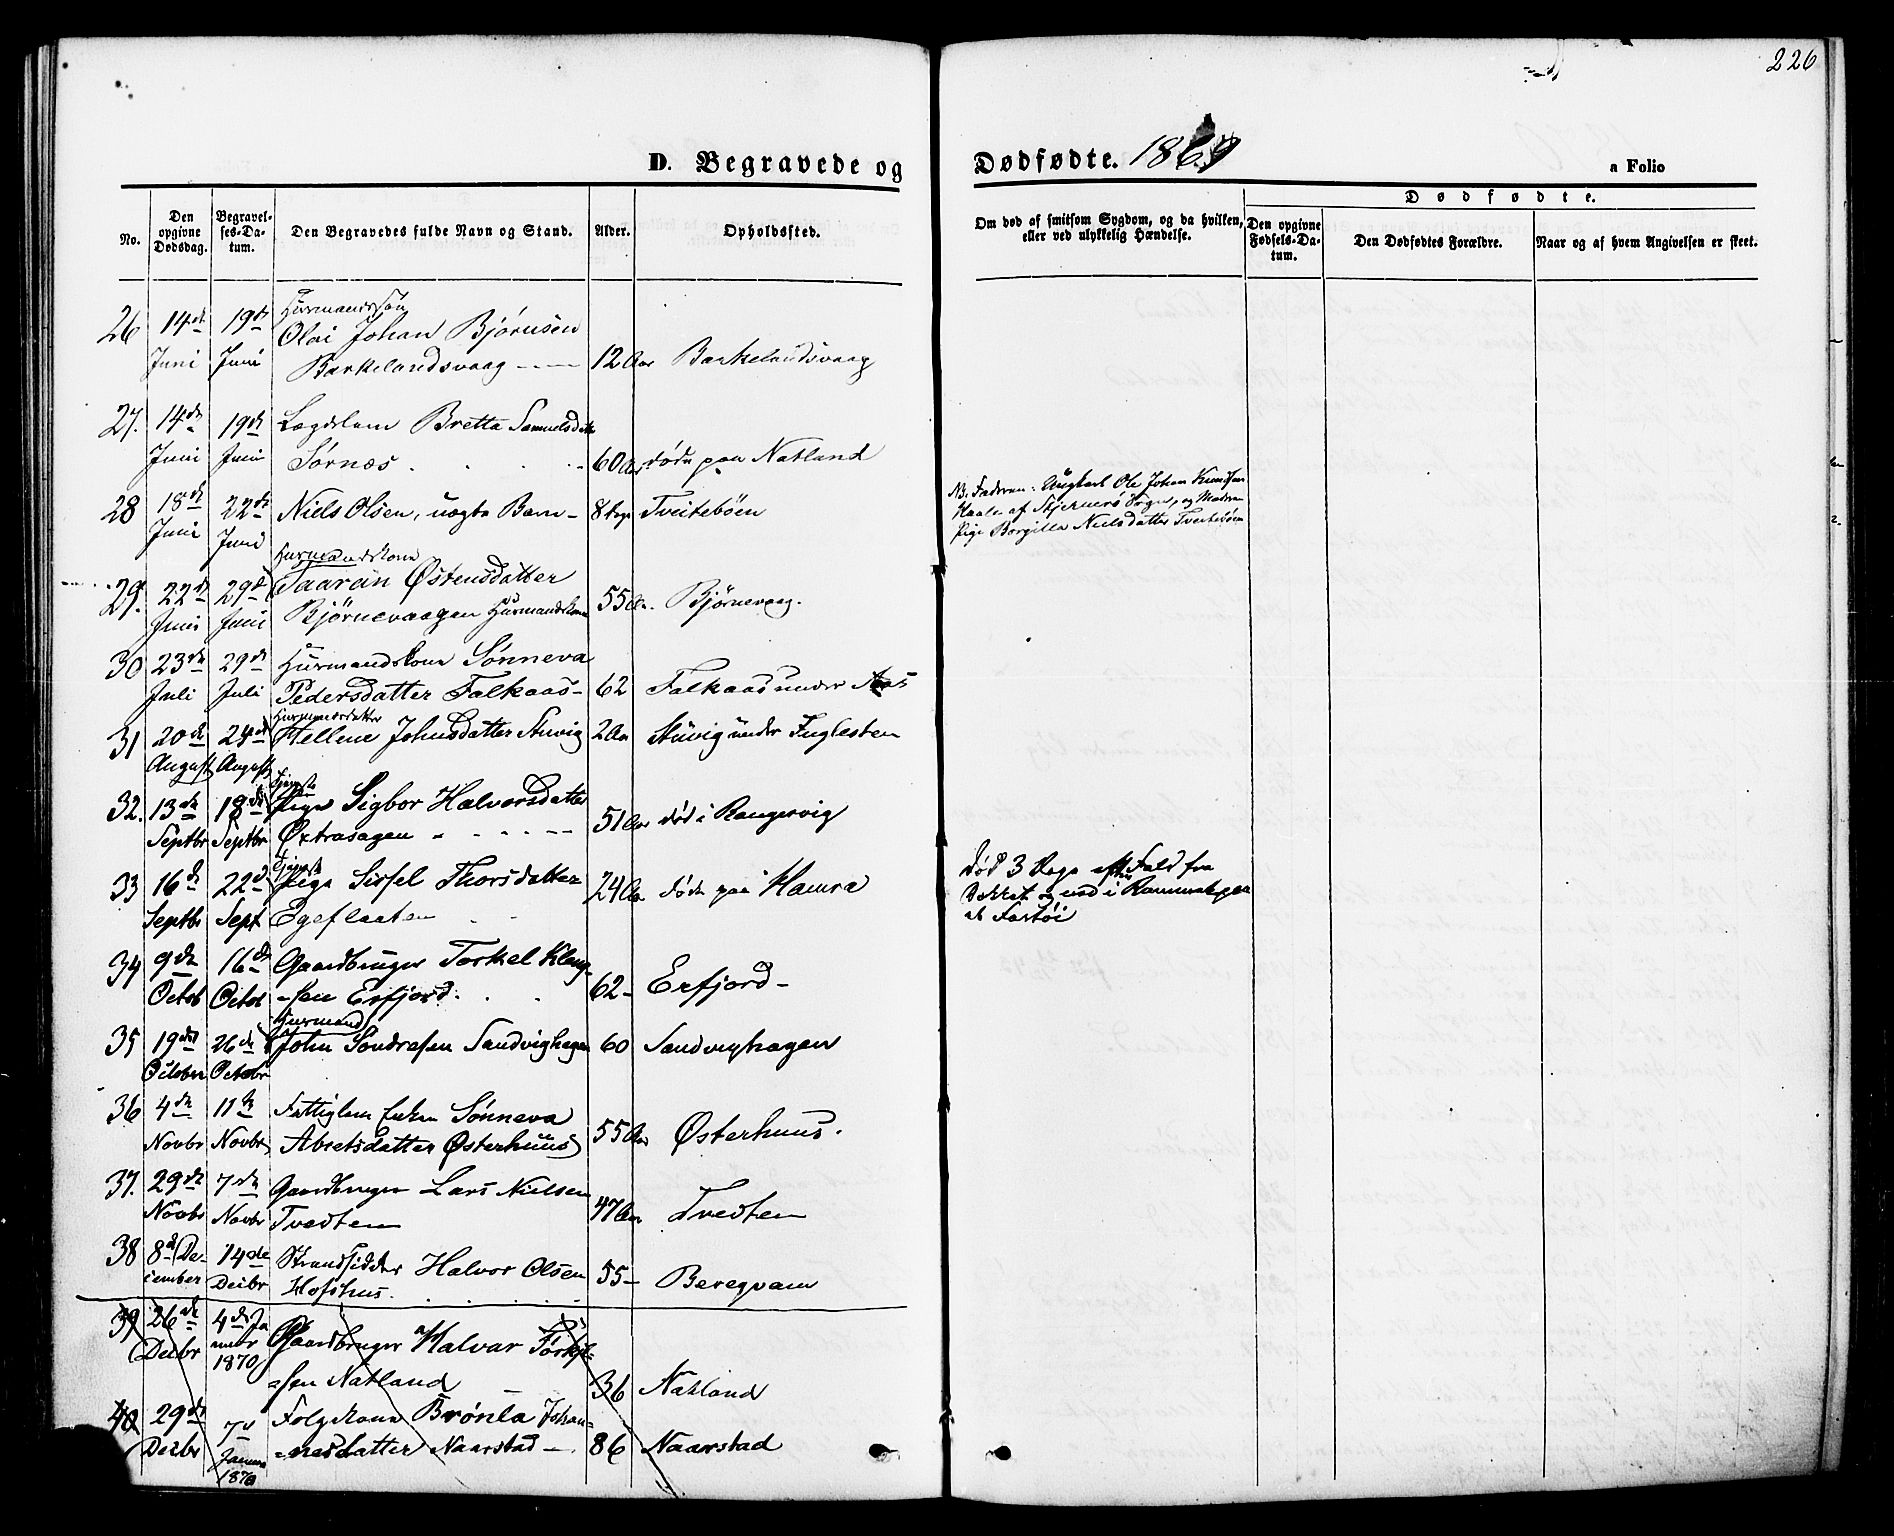 226
D. Begravede og Dødfødte. 1869 a Folio
No.
Den opgivne Dødsdag.
Begravelses-Datum.
Den Begravedes fulde Navn og Stand.
Alder.
Opholdssted.
Om død af smitsom Sygdom, og da hvilken, eller ved ulykkelig Hændelse.
Dødfødte.
Den opgivne Fødsels-Datum.
Den Dødfødtes Forældre.
Naar og af hvem Angivelsen er skeet.
Huusmandssøn
26 14de 19de Olai Johan Bjørnsen
Juni Juni Barkelandsvaag 12 Aar Barkelandsvaag
27. 14de 19de Lægdslem Bretta Samuelsdatter
Juni Juni Sørnæs 60 Aar døde paa Natland
28 18de 22de Niels Olsen, uægte Barn 8 Tveitebøen
Juni Juni
NB. Faderen: Ungkarl Ole Johan Knudsen
af Hjernerø Sogn, og Moderen
Pige Borgilla Nielsdatter Tveitebøen
Huusmandskone
29. 22de 29de Taaran Østensdatter
Juni Juni Bjørnevaagen Huusmandskone 55 Aar. Bjørnevaag.
30 23de 29de Huusmandskone Sønneva
Juli Juli Pedersdatter Falkaas 62 Falkaas under Aas
Huusmandsdatter
31 20de 24de Hellene Johnsdatter Stuvig 2 Aar Stuvig under Fuglesten
August August
Tjeneste
32. 13de 18de Pige Sigbor Halvorsdatter
Septbr Septbr Øxtrasagen 51 Aar død i Rangervig
Tjeneste
33 16de 22de Pige Sissel Thorsdatter
Septbr Sept Egeflaaten 24 Aar døde paa Hamra
Død 3 Dage efter Fald fra
Dækket og ned i Rummet paa
34 9de 16de Gaardbruger Torkel Kleng-
Octob Octob -sen Erfjord. 62 Erfjord
Huusmand
35 19de 26de John Sondresen Sandvighagen 60 Sandvighagen
October Octobr
36 4de 11te Fattiglem Enken Sønneva
Novbr Novbr Abretsdatter Østerhuus 55 Aar Østerhuus.
37. 29de 7de Gaardbruger Lars Nielsen
Novbr Novbr Tvedten 47 Aar Tvedten
38 8de De- 14de Strandsidder Halvor Olsen
cember Decbr Hofshus. 55 Beregvam
39 26de 4de Ja Gaardbruger Halvar Torkjel-
Decbr nuar 1870 -sen Natland 36 Natland
40 29de 7d Folgekone Brønla Johan-
Decbr Januar 1870 -nesdatter Naarstad 86 Naarstad